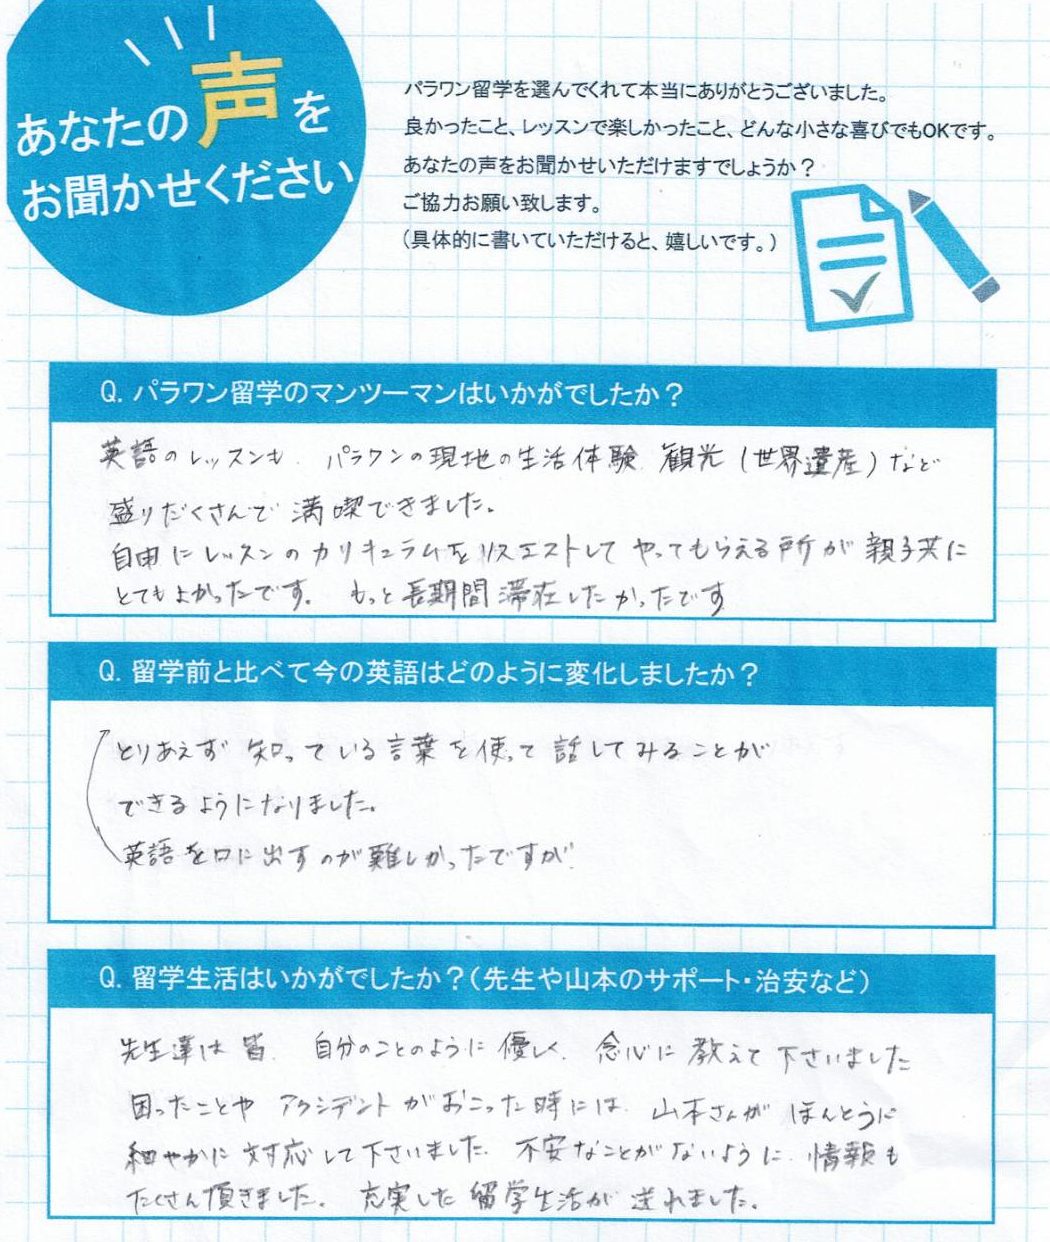 あなたの声を
お聞かせください
パラワン留学を選んでくれて本当にありがとうございました。
良かったこと、レッスンで楽しかったこと、どんな小さな喜びでもOKです。
あなたの声をお聞かせいただけますでしょうか？
ご協力お願い致します。
（具体的に書いていただけると、嬉しいです。）
Q. パラワン留学のマンツーマンはいかがでしたか？
英語のレッスンも、パラワンの現地の生活体験、観光(世界遺産)など
盛りだくさんで満喫できました。
自由にレッスンのカリキュラムをリクエストしてやってもらえる所が親子共に
とてもよかったです。もっと長期間滞在したかったです
Q. 留学前と比べて今の英語はどのように変化しましたか？
とりあえず知っている言葉を使って話してみることが
できるようになりました。
英語を口に出すのが難しかったですが、
Q. 留学生活はいかがでしたか？（先生や山本のサポート・治安など）
先生達は皆、自分のことのように優しく、念心に教えて下さいました
困ったことやアクシデントがおこった時には、山本さんがほんとうに
細やかに対応して下さいました、不安なことがないように、情報も
たくさん頂きました。充実した留学生活が送れました。